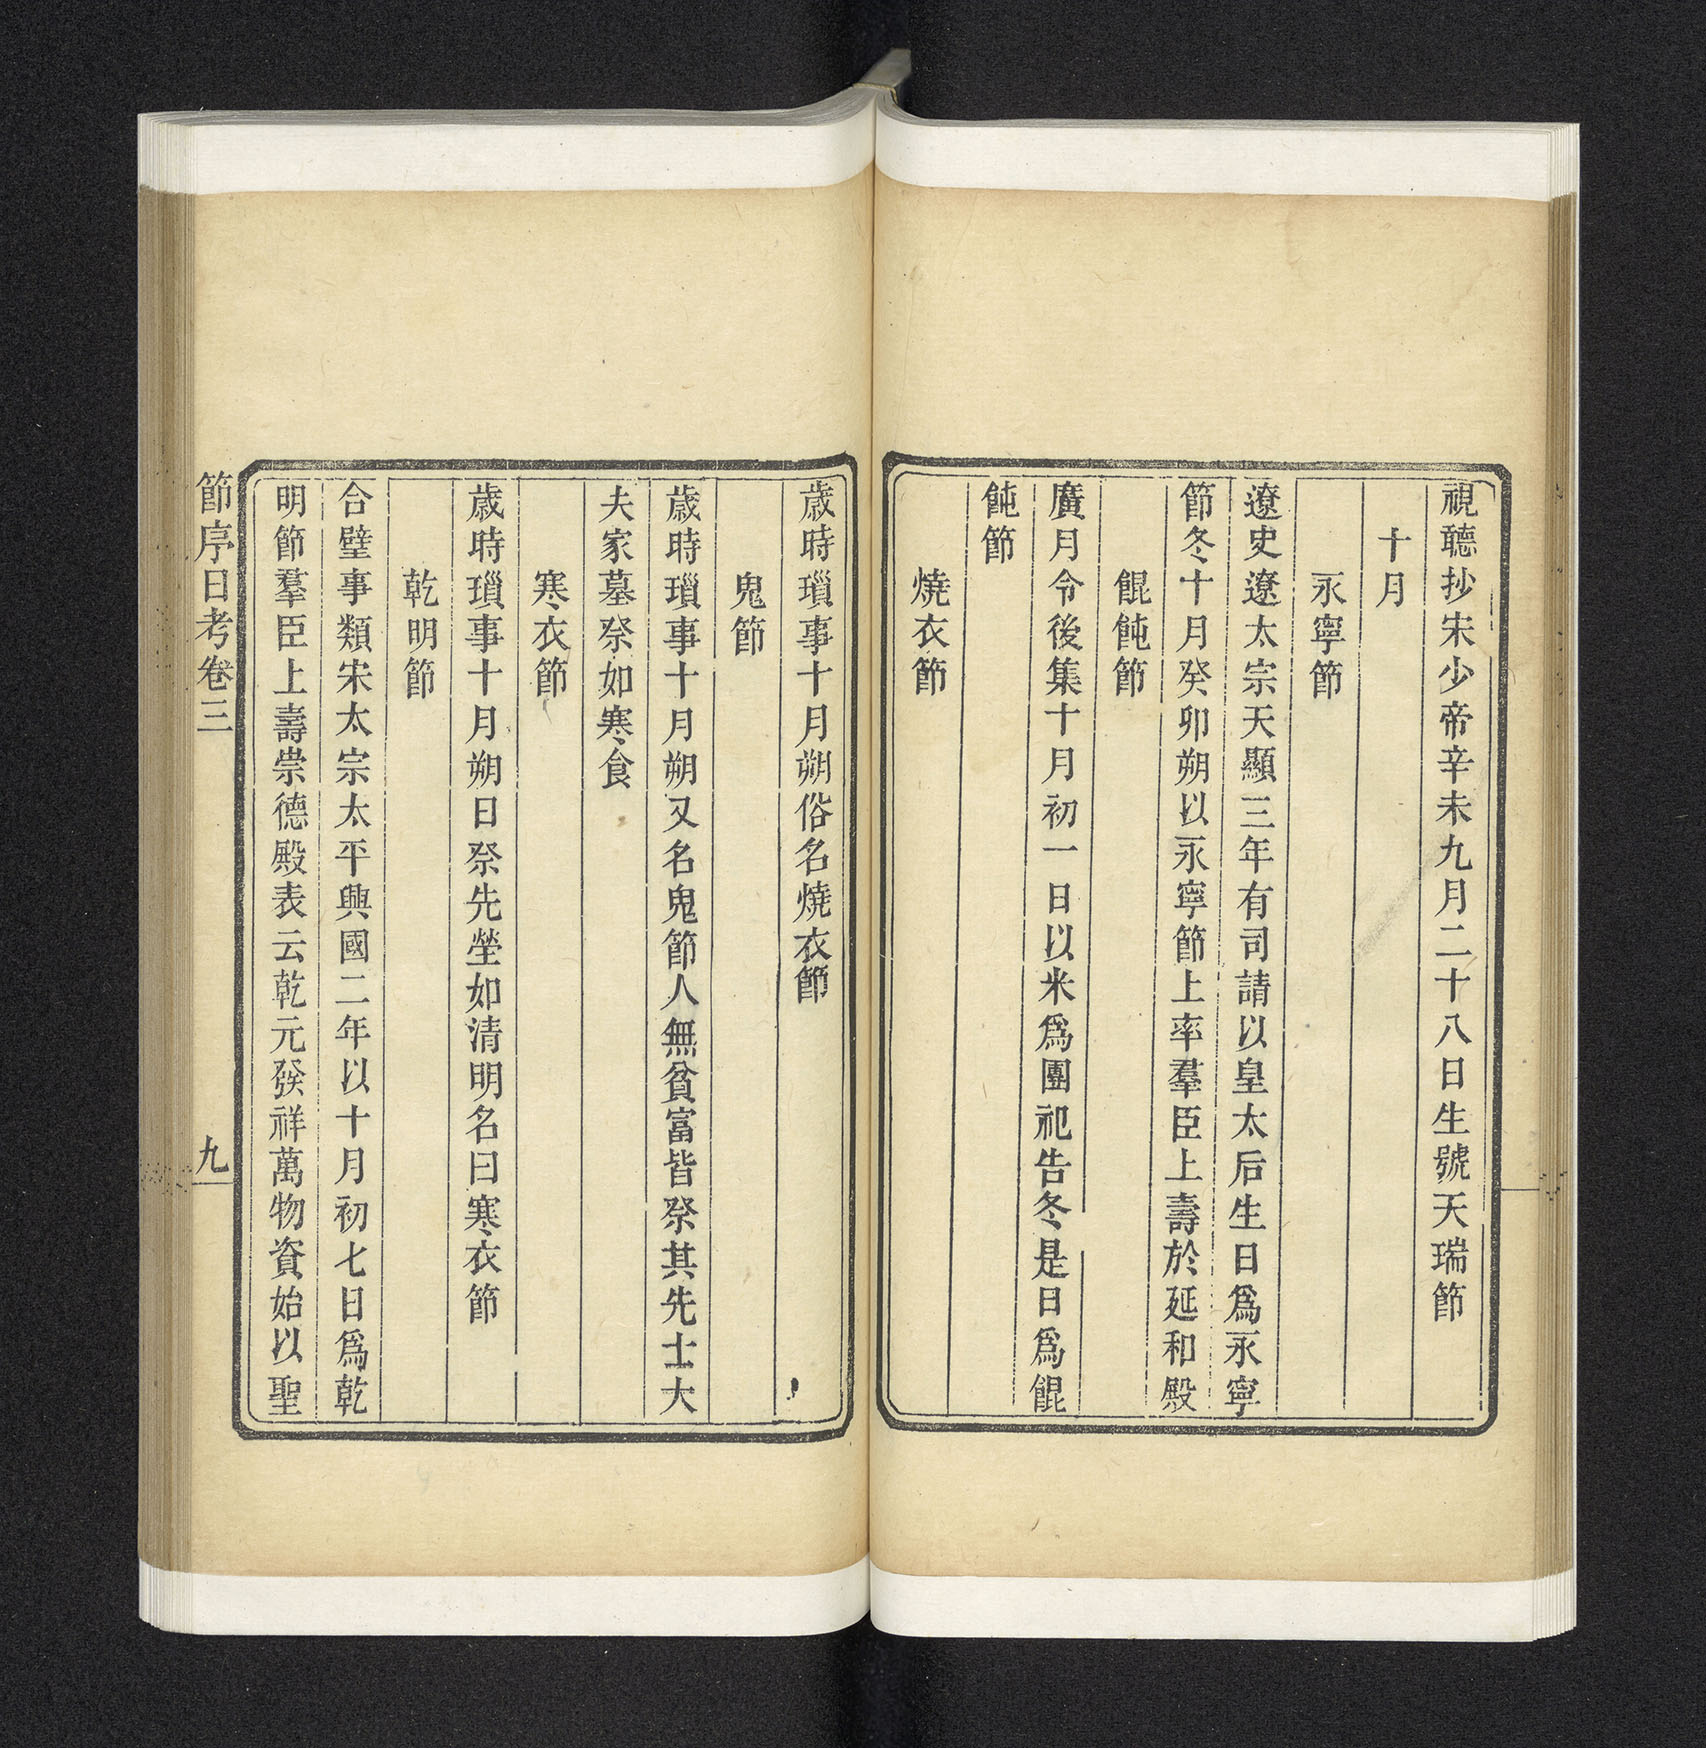 視聽抄宋少帝辛未九月二十八日生號天瑞節
十月
永寧節
遼史遼太宗天顯三年有司請以皇太后生日爲永寧
節冬十月癸卯朔以永寧節上率羣臣上壽於延和殿
餛飩節
廣月令後集十月初一日以米爲團祀告冬是日爲餛
飩節
燒衣節
歲時瑣事十月朔俗名燒衣節
鬼節
歲時瑣事十月朔又名鬼節人無貧富皆祭其先士大
夫家墓祭如寒食
寒衣節
歲時瑣事十月朔日祭先塋如清明名曰寒衣節
乾明節
合璧事類宋太宗太平興國二年以十月初七日爲乾
明節羣臣上壽崇德殿表云乾元發祥萬物資始以聖
節序日考卷三
九